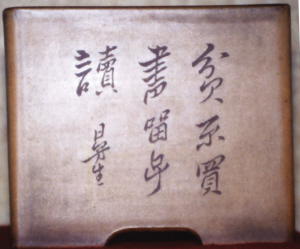 貧不賣
書留子
讀
曼生